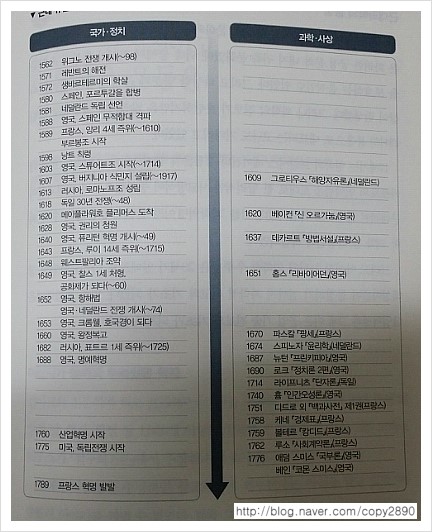 국가·정치
1562 위그노 전쟁 개시(~98)
1571 레반트의 해전
1572 생바르테르미의 학살
1580 스페인, 포르투갈을 합병
1581 네덜란드 독립 선언
1588 영국, 스페인 무적함대 격파
1589 프랑스, 앙리 4세 즉위(~1610)
부르봉조 시작
1598 낭트 칙령
1603 영국, 스튜어트조 시작(~1714)
1607 영국, 버지니아 식민지 설립(~1917)
1613 러시아, 로마노프조 성립
1618 독일 30년 전쟁(~48)
1620 메이플라워호 플리머스 도착
1628 영국, 권리의 청원
1640 영국, 퓨리턴 혁명 개시(~49)
1643 프랑스, 루이 14세 즉위(~1715)
1648 웨스트팔리아 조약
1649 영국, 찰스 1세 처형,
공화제가 되다(~60)
1652 영국, 항해법
영국·네덜란드 전쟁 개시(~74)
1653 영국, 크롬웰, 호국경이 되다
1660 영국, 왕정복고
1682 러시아, 표트르 1세 즉위(~1725)
1688 영국, 명예혁명
1760 산업혁명 시작
1775 미국, 독립전쟁 시작
1789 프랑스 혁명 발발
과학·사상
1609 그로티우스 『해양자유론』(네덜란드)
1620 베이컨 『신 오르가논』(영국)
1637 데카르트 『방법서설』(프랑스)
1651 홉스 『리바이어던』(영국)
1670 파스칼 『팡세』(프랑스)
1674 스피노자 『윤리학』(네덜란드)
1687 뉴턴 『프린키피아』(영국)
1690 로크 『정치론 2편』(영국)
1714 라이프니츠 『단자론』(독일)
1740 흄 『인간오성론』(영국)
1751 디드로 외 『백과사전』 제1권(프랑스)
1758 케네 『경제표』(프랑스)
1759 볼테르 『캉디드』(프랑스)
1762 루소 『사회계약론』(프랑스)
1776 애덤 스미스 『국부론』(영국)
페인 『코몬 스미스』(영국)
http://blog.naver.com/copy2890